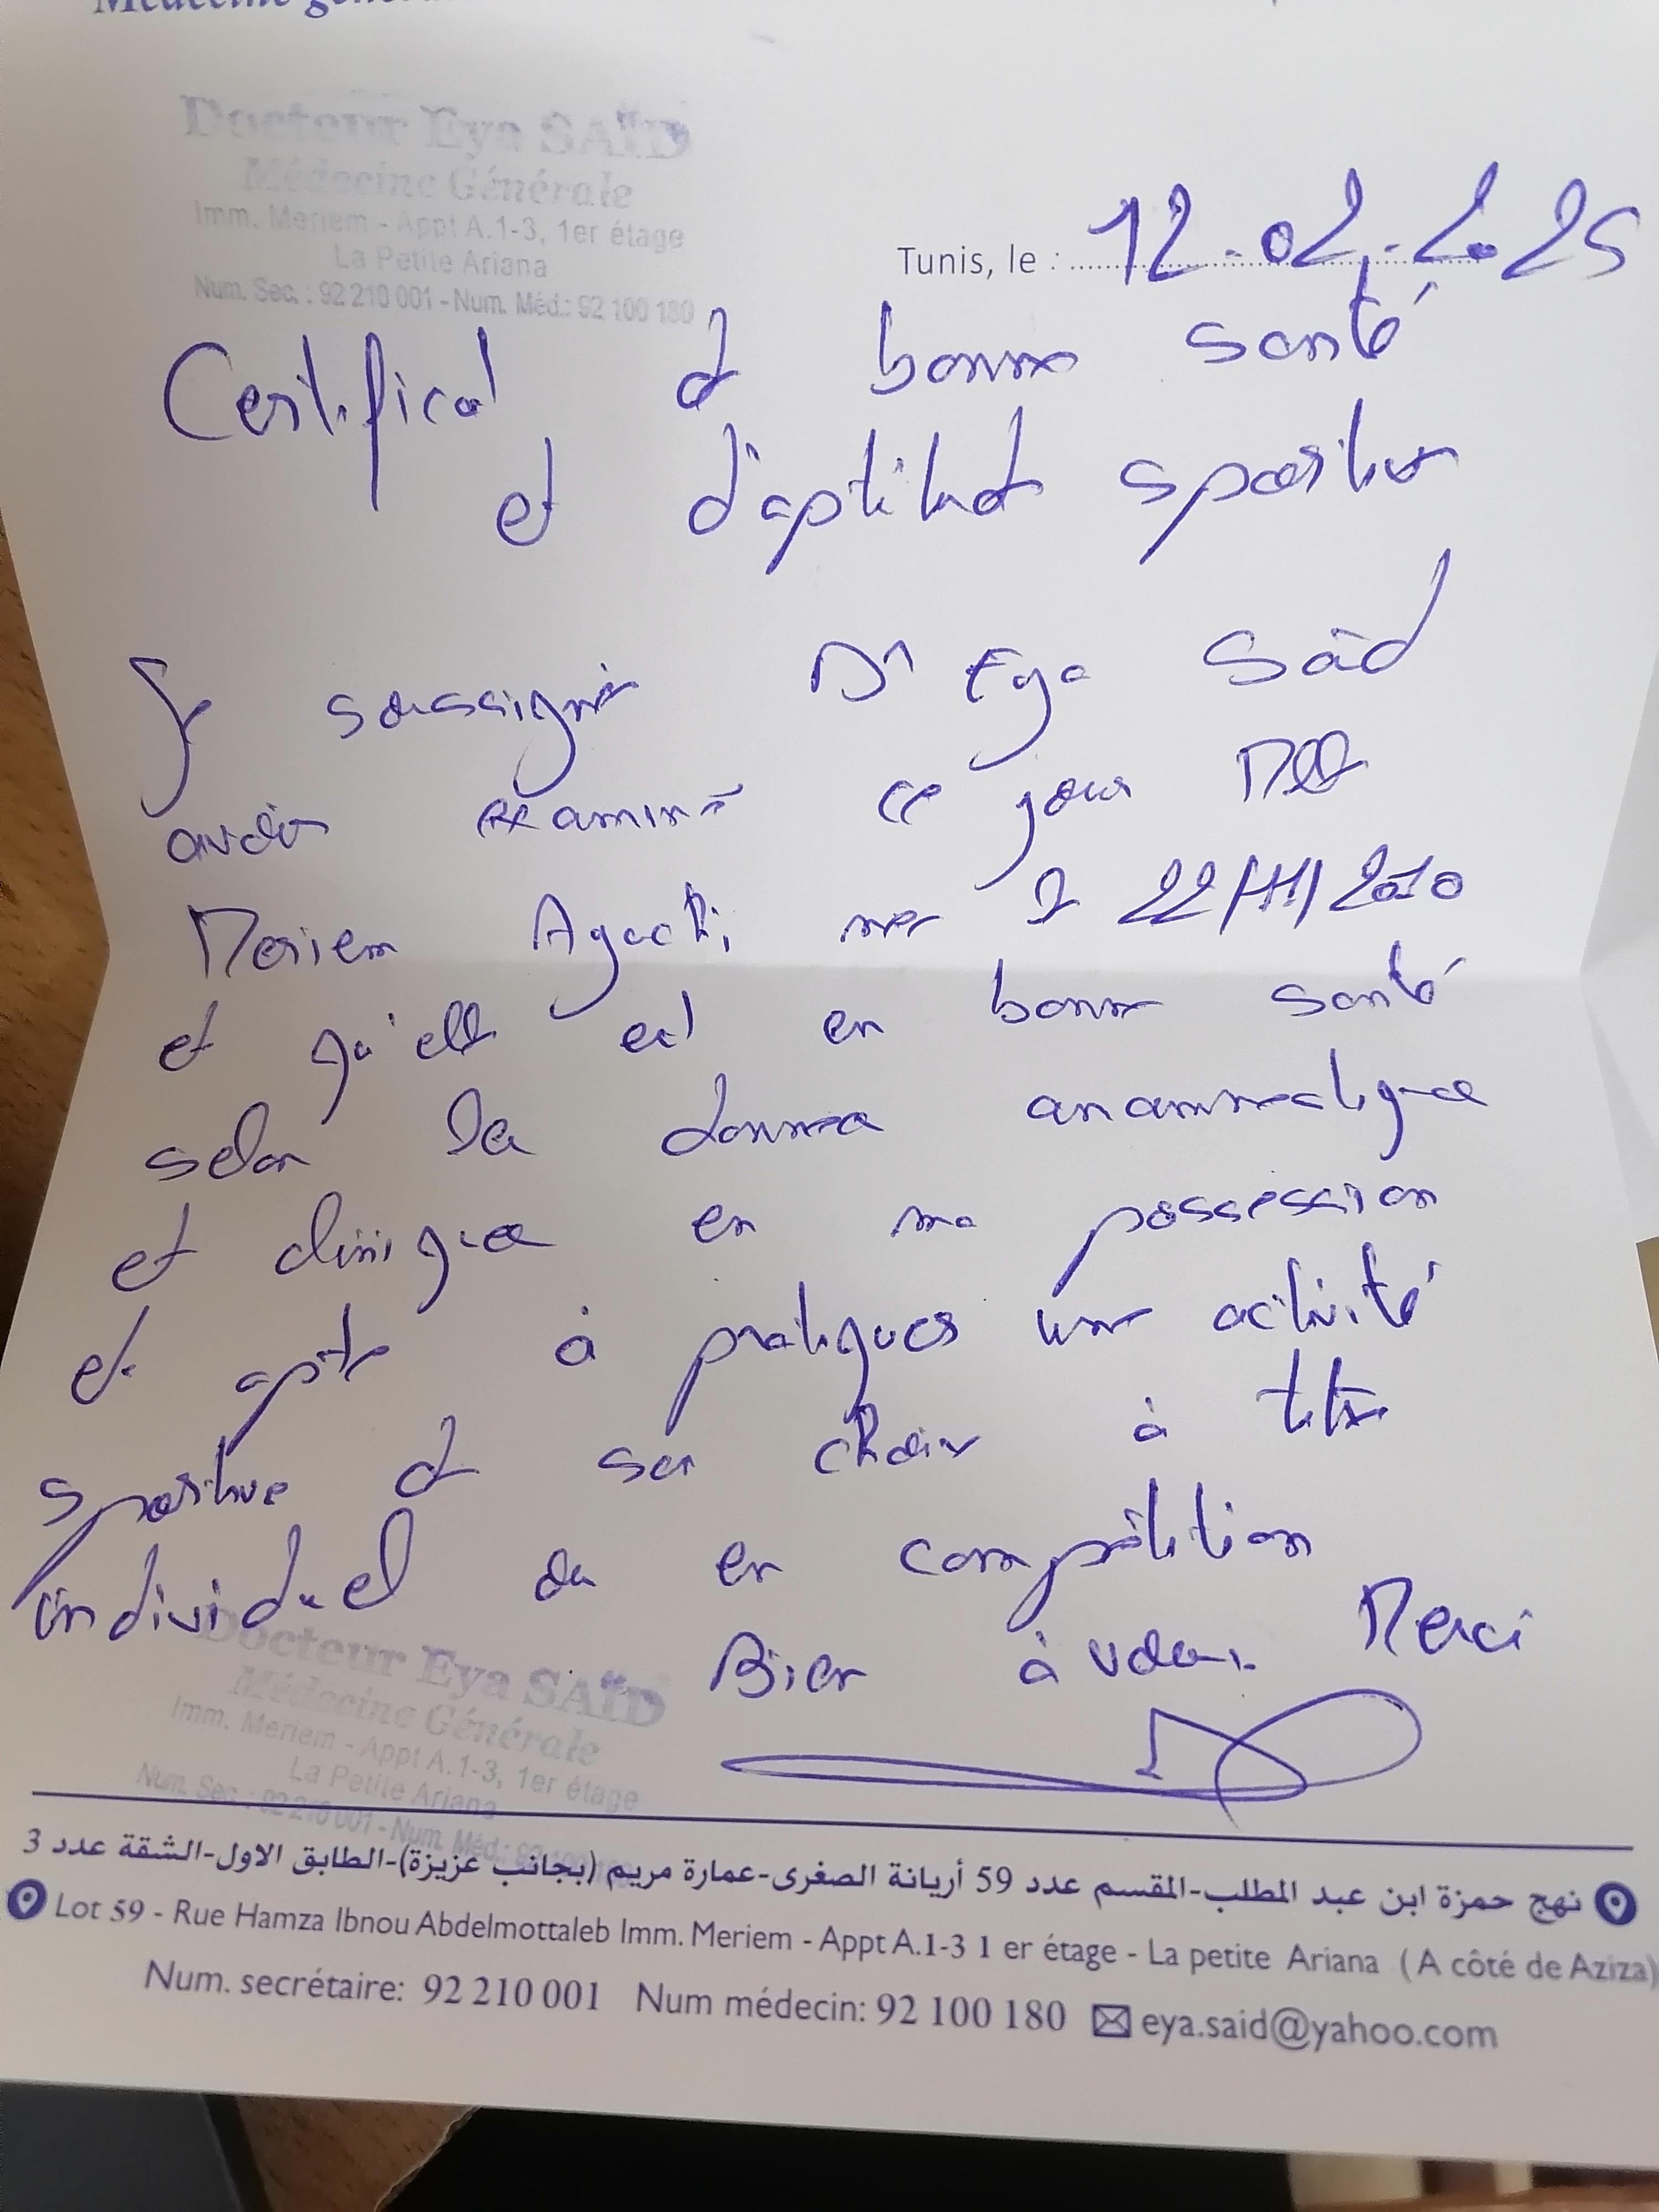 Docteur Eya SAÏD
Médecine Générale
Imm. Meriem - Appt A.1-3, 1er étage
La Petite Ariana
Num. Sec. : 92 210 001 - Num. Méd.: 92 100 180
Tunis, le : 12-02-2025
Certificat de bonne santé
et d'aptitude sportive
Je soussigné Dr Eya Said
avoir examiné ce jour Mlle
Meriem née le 22/11/2010
et qu'elle est en bonne santé
selon les données anamnestiques
et cliniques en ma possession
et apte à pratiquer une activité
sportive de son choix à titre
individuel ou en compétition
Bien à vous. Merci
Docteur Eya SAÏD
Médecine Générale
Imm. Meriem - Appt A.1-3, 1er étage
La Petite Ariana
Num. Sec. : 92 210 001 - Num. Méd.: 92 100 180
نهج حمزة ابن عبد المطلب-المقسم عدد 59 أريانة الصغرى-عمارة مريم (بجانب عزيزة)-الطابق الاول-الشقة عدد 3
Lot 59 - Rue Hamza Ibnou Abdelmottaleb Imm. Meriem - Appt A.1-3 1 er étage - La petite Ariana ( A côté de Aziza)
Num. secrétaire: 92 210 001 Num médecin: 92 100 180 eya.said@yahoo.com